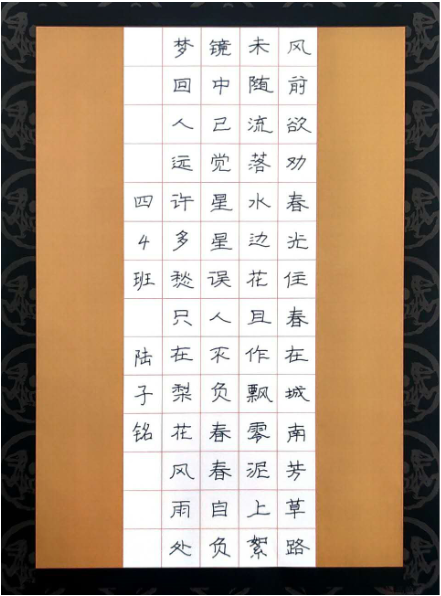 风前欲劝春光住春在城南芳草路
未随流落水边花且作飘零泥上絮
镜中已觉星星误人不负春春自负
梦回人远许多愁只在梨花风雨处
四4班 陆子铭